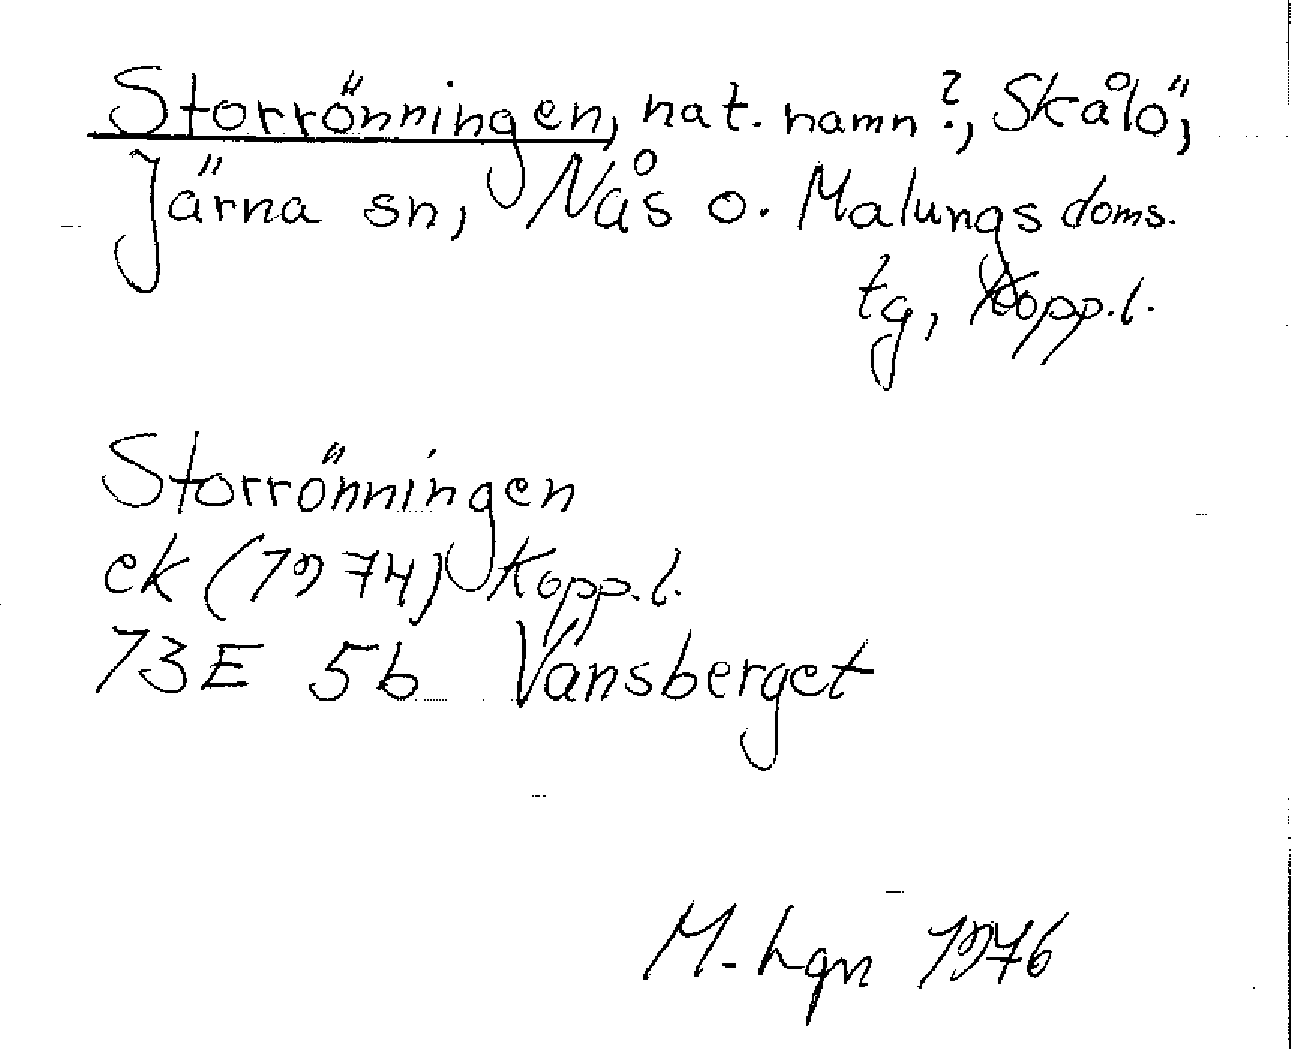 Storrönningen, nat. namn?, Skålö,
Järna sn, Nås o. Malungs doms.
tg, Kopp.l.
Storrönningen
ek (1974) Kopp.l.
13E 5b Vansberget
M. Lqn 1976